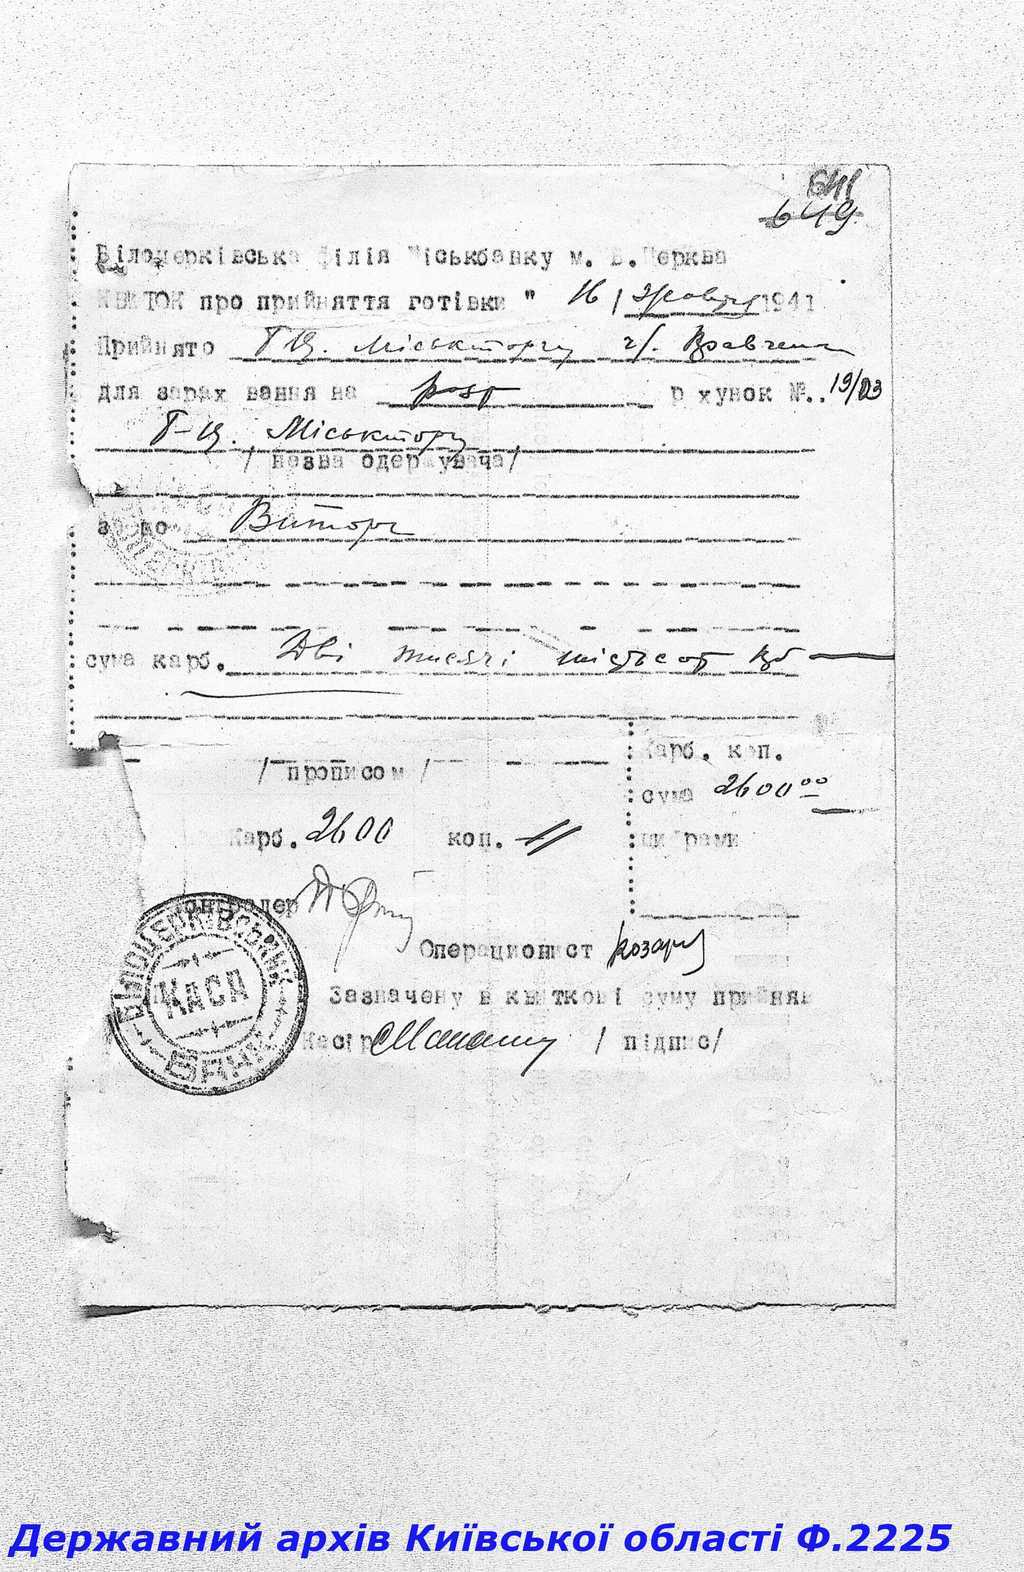 641
649
Білоцерківська філія Міськбанку м. Б.Церква
КВИТОК про прийняття готівки " 16 / Жовтня 1941
Прийнято Г-Ц. Міськторгу ч/.
для зарах вання на розр р хунок №.. 19/03
Г-Ц. Міськторгу
/ назва одержувача/
Виторг
сума карб. Дві тисячі шістсот крб
/ прописом /
Карб. коп.
сума 2600 00
цифрами
Карб. 2600 коп. //
Контролер
Операционист Козар
БІЛОЦЕРКІВСЬКИЙ БАНК
КАСА
Зазначену в квиткові суму прийняв
Касір / підпис/
Державний архів Київської області Ф.2225